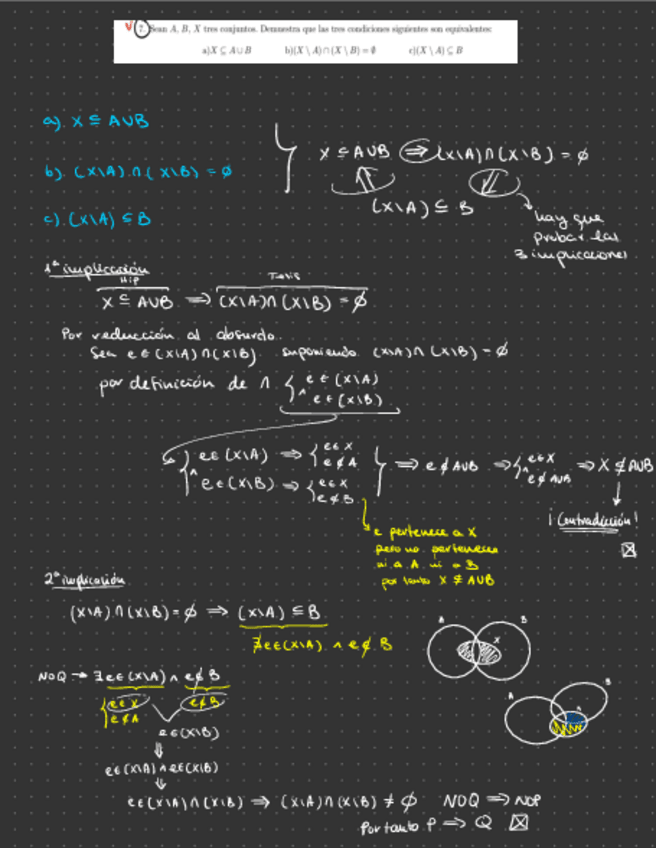 7. Sean A, B, X tres conjuntos. Demuestra que las tres condiciones siguientes son equivalentes:
a)X ⊆ A ∪ B b)(X \ A) ∩ (X \ B) = ∅ c)(X \ A) ⊆ B
a). X ⊆ A∪B
b). (X\A) ∩ (X\B) = ∅
c). (X\A) ⊆ B
X ⊆ A∪B ⇒ (X\A)∩(X\B) = ∅
(X\A) ⊆ B
hay que
probar las
3 implicaciones
1ª implicación
Hip Tesis
X ⊆ A∪B ⇒ (X\A)∩(X\B) = ∅
Por reducción al absurdo.
Sea e∈(X\A)∩(X\B) suponiendo (X\A)∩(X\B) = ∅
por definición de ∩ { e∈(X\A)
∧ e∈(X\B)
e∈(X\A) ⇒ { e∈X
e∉A
∧
e∈(X\B) ⇒ { e∈X
e∉B
⇒ e∉A∪B ⇒ { e∈X
∧ e∉A∪B ⇒ X⊈A∪B
¡Contradicción!
e pertenece a X
pero no pertenece
ni a A ni a B
por tanto X ⊈ A∪B
2ª implicación
(X\A)∩(X\B) = ∅ ⇒ (X\A) ⊆ B
∄e∈(X\A) ∧ e∉B
A B
X
NOQ → ∃e∈(X\A) ∧ e∉B
{ e∈X
e∉A
e∉B
A B
e∈(X\B)
⇓
e∈(X\A) ∧ e∈(X\B)
⇓
e∈(X\A)∩(X\B) ⇒ (X\A)∩(X\B) ≠ ∅ NOQ ⇒ NOP
Por tanto P ⇒ Q